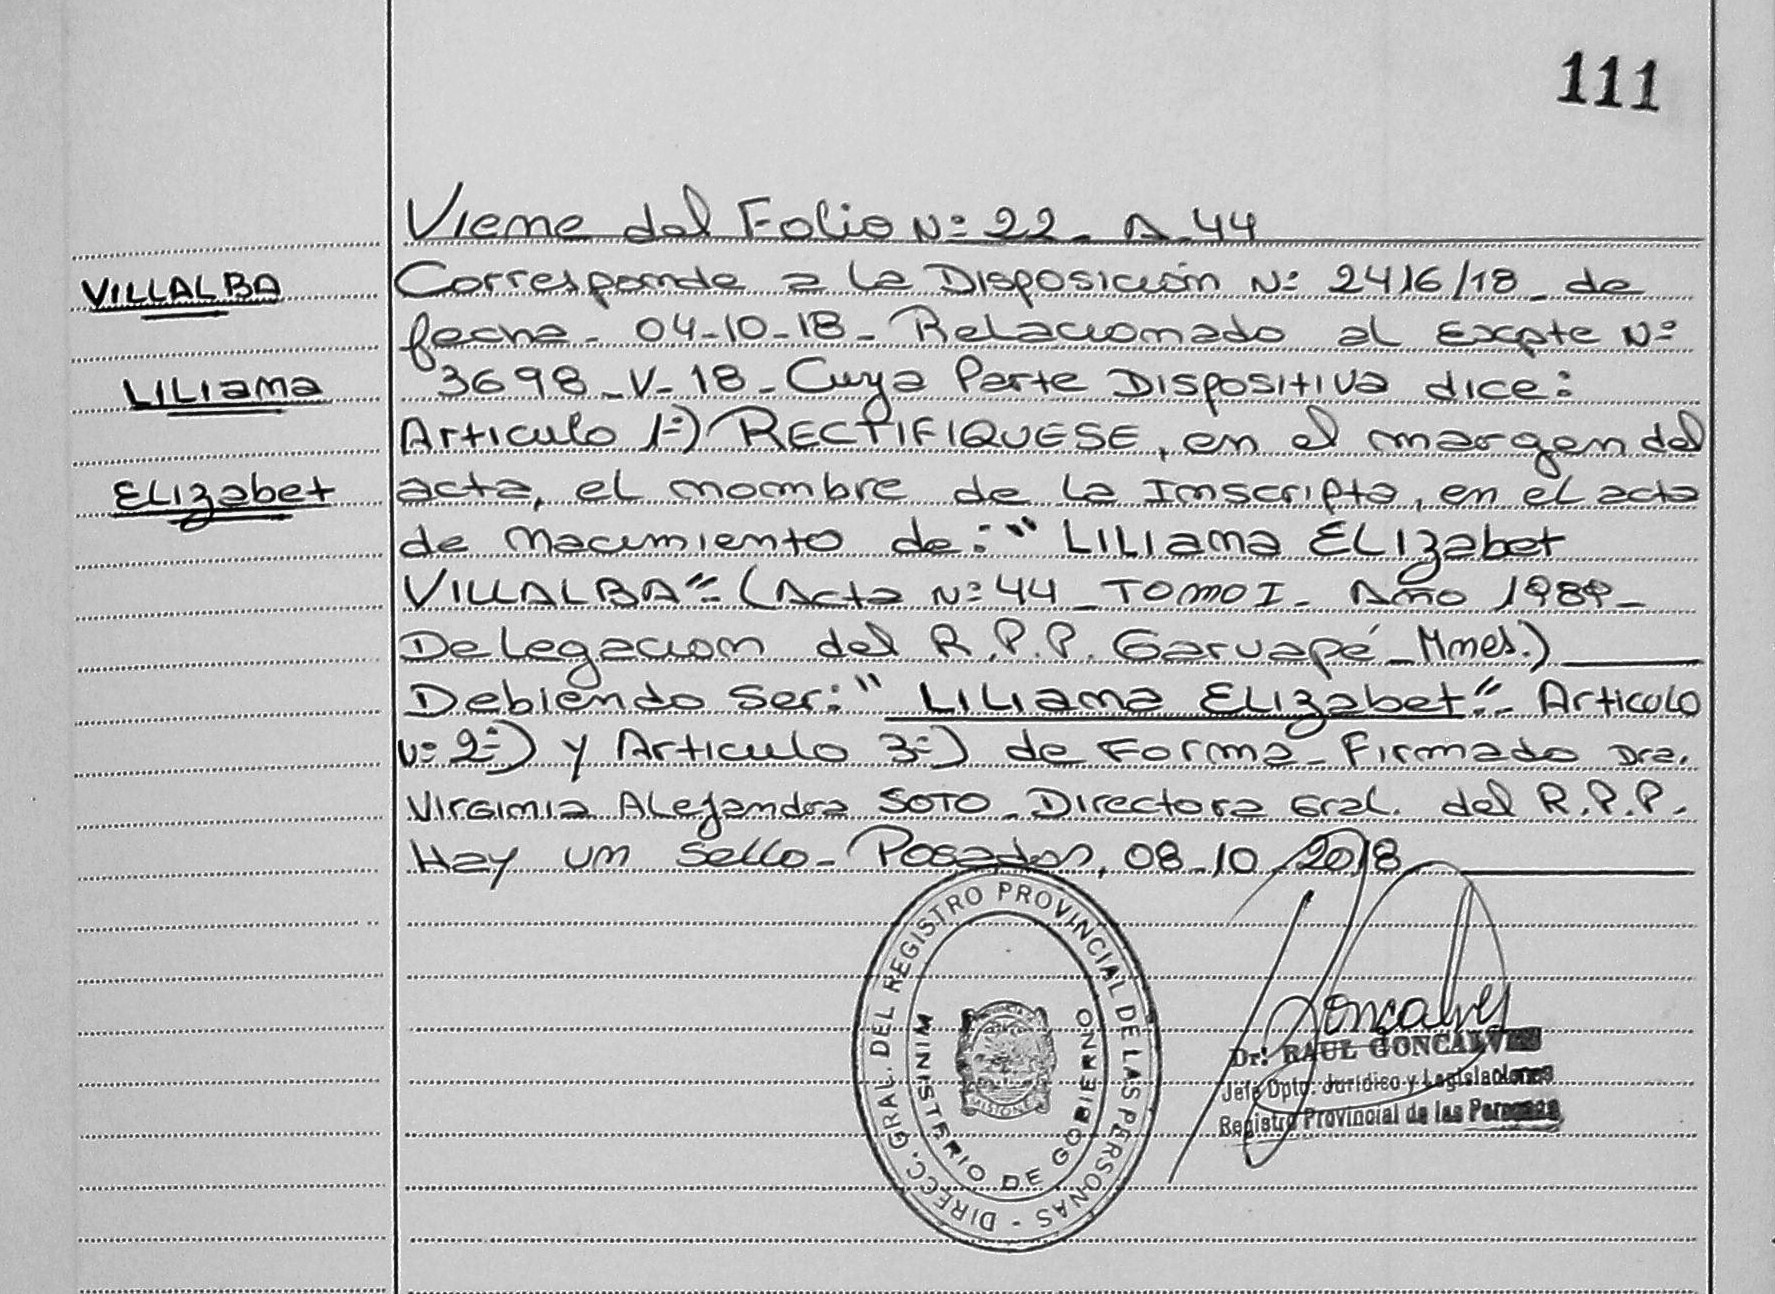 111
Viene del Folio Nº 22 - A - 44
VILLALBA
LILIana
ELIzabet
Corresponde a la Disposición Nº 2416/18 - de
fecha - 04-10-18 - Relacionado al Expte Nº
3698 - V - 18 - Cuya Parte Dispositiva dice:
Articulo 1º) RECTIFIQUESE, en el margen del
acta, el nombre de la Inscripta, en el acta
de Nacimiento de: " LILIana ELIzabet
VILLALBA" - (Acta Nº 44 - TOMO I - Año 1989 -
Delegacion del R.P.P. Garuapé - Mnes.)
Debiendo Ser: " LILIana ELIzabet" - Articulo
Nº 2º) y Articulo 3º) de Forma - Firmado Dra.
Virginia Alejandra SOTO - Directora Gral. del R.P.P.
Hay un Sello - Posadas, 08-10-2018
DIRECC. GRAL. DEL REGISTRO PROVINCIAL DE LAS PERSONAS -
MINISTERIO DE GOBIERNO
MISIONES
Goncalves
Dr. RAUL GONCALVES
Jefe Dpto. Jurídico y Legislaciones
Registro Provincial de las Personas